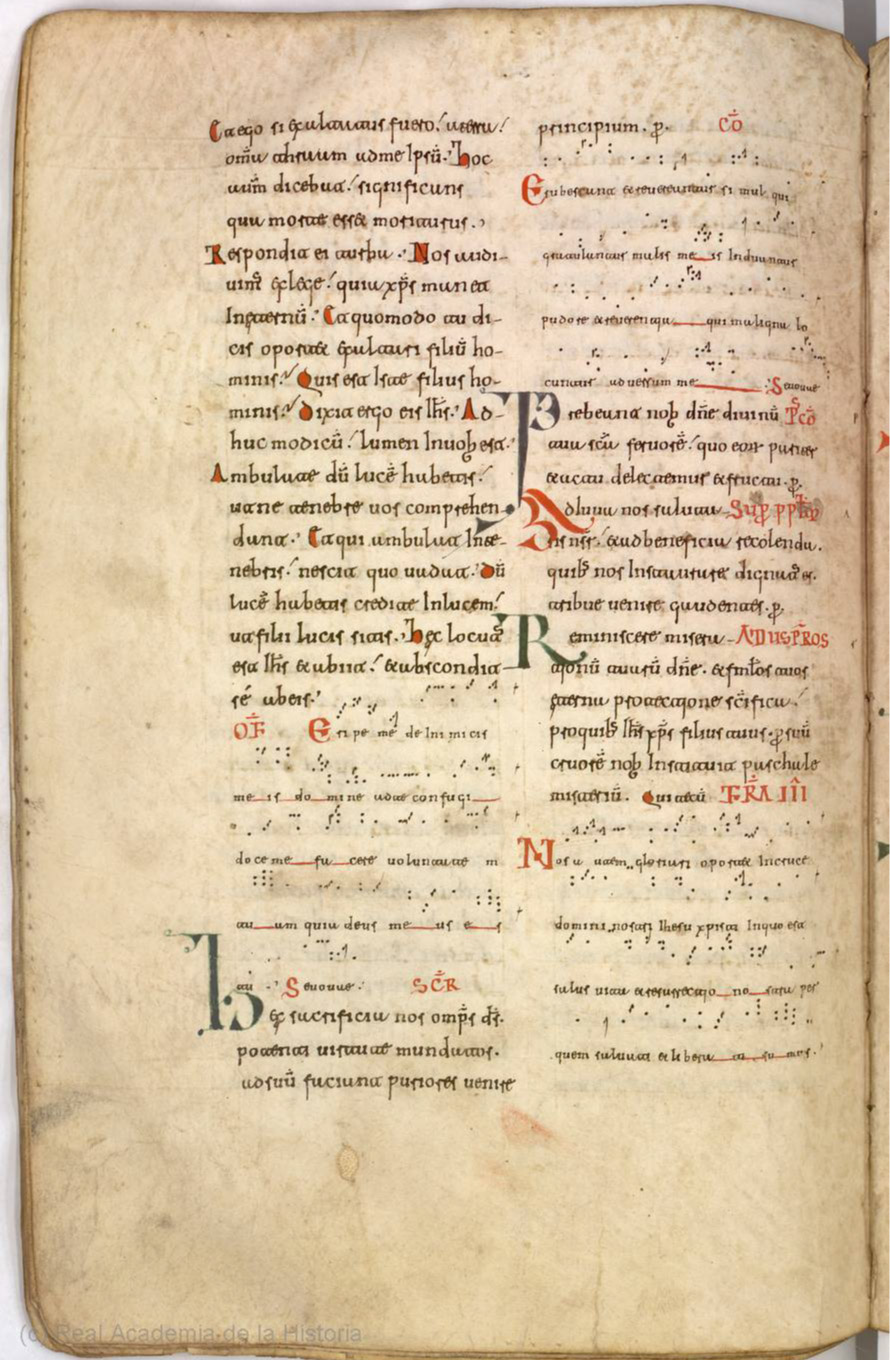 Et ego si exaltatus fuero a terra
om̄ia traham ad me Ipsū. Hoc
autm̄ dicebat significans
qua morte esset moriturus.
Respondit ei turba. Nos audi-
uim̄ ex lege quia xp̄s manet
In eternū. Et quomodo tu di-
cis oportet exaltari filiū ho-
minis. Quis est Iste filius ho-
minis. Dixit ergo eis Ih̄s. Ad-
huc modicū lumen In uob est.
Ambulate dū lucē habetis
ut ne tenebre uos comprehen-
dant. Et qui ambulat In te-
nebris nescit quo uadat. Dū
lucē habetis credite In lucem
ut filii lucis sitis. Hec locutꝰ
est Ih̄s et abiit et abscondit
sē ab eis.
OF̄ Eripe me de Inimicis
me is do mine ad te confugi
doce me fa cere uoluntate m
tu am quia deus me us e s
tu. Seuouae. SCR̄
Hec sacrificia nos omp̄s ds̄.
potenti uirtute mundatos.
ad suū faciant puriores uenire
principium. p. CŌ
Erubescant et reuereantur simul qui
gratulantur malis me is Induantur
pudore et reuerentia qui maligna lo
cuntur aduersum me Seuouae
Prebeant nob dn̄e diuinū P̄ CŌ
tuu scā feruorē quo eorꝝ pariter
et actu delectemur et fructu. p.
Adiuua nos salutaris Sup ppl̄m
ds n̄r et ad beneficia recolenda.
quib nos Instaurare dignatꝰ es.
tribue uenire gaudentes. p.
Reminiscere misera AD USP̄ROS
tionū tuarū dn̄e. et fml̄os tuos
eterna protectione sc̄ifica
pro quib Ih̄s xp̄s filius tuus. p suū
cruorē nob Instituit paschale
misteriū. Qui tecū FR̄A III
Nos autem gloriari oportet In cruce
domini nostri Ihesu xpisti In quo est
salus uita et resurrectio no stra per
quem saluati et libera ti su mus.
(c) Real Academia de la Historia